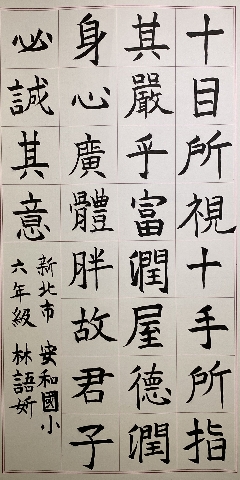 十目所視十手所指
其嚴乎富潤屋德潤
身心廣體胖故君子
必誠其意
新北市 安和國小
六年級 林語妡